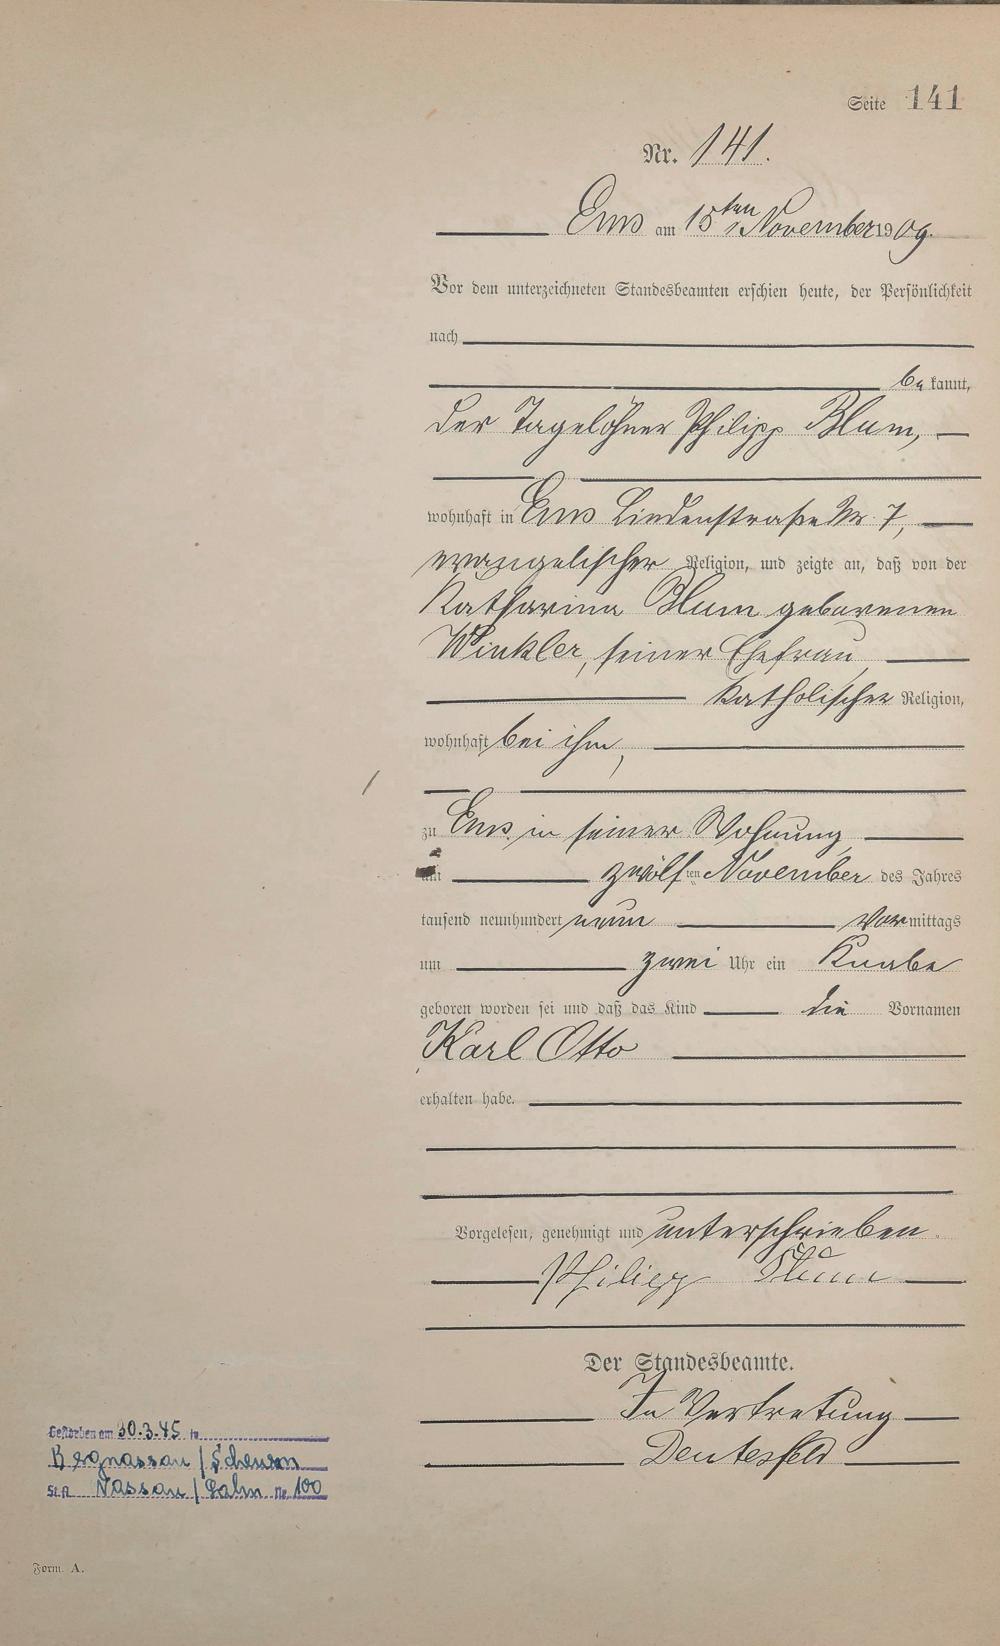 Seite 141
Nr. 141.
Ems am 15ten November 1909.
Vor dem unterzeichneten Standesbeamten erschien heute, der Persönlichkeit
nach
bekannt,
der Tagelöhner Philipp Blum,
wohnhaft in Ems Lindenstraße Nr. 7,
evangelischer Religion, und zeigte an, daß von der
Katharina Blum geborenen
Winkler, seiner Ehefrau,
katholischer Religion,
wohnhaft bei ihm,
zu Ems in seiner Wohnung,
am zwölften November des Jahres
tausend neunhundert neun Vormittags
um zwei Uhr ein Knabe
geboren worden sei und daß das Kind die Vornamen
Karl Otto
erhalten habe.
Vorgelesen, genehmigt und unterschrieben.
Philipp Blum
Der Standesbeamte.
In Vertretung
Deutesfeld
Gestorben am 30.3.45 in
Bergnassau / Scheuern
St.A. Nassau / Lahn Nr. 100
Form. A.